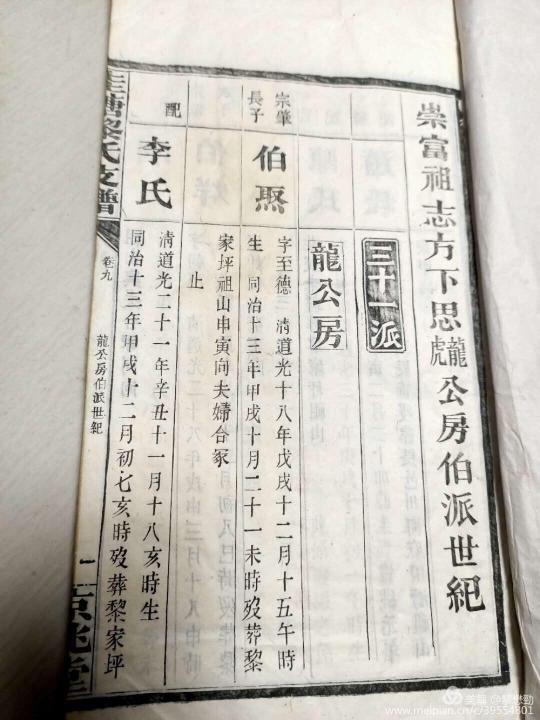 崇富祖志方下思龍虎公房伯派世紀
三十一派
龍公房
宗肇
長子
伯焣
字至德 清道光十八年戊戌十二月十五午時
生 同治十三年甲戌十月二十一未時歿葬黎
家坪祖山申寅向夫婦合冢
止
配
李氏
清道光二十一年辛丑十一月十八亥時生
同治十三年甲戌十二月初七亥時歿葬黎家坪
黎氏支譜
卷九
龍公房伯派世紀
京兆堂
美篇
www.meipian.cn/c/39554801